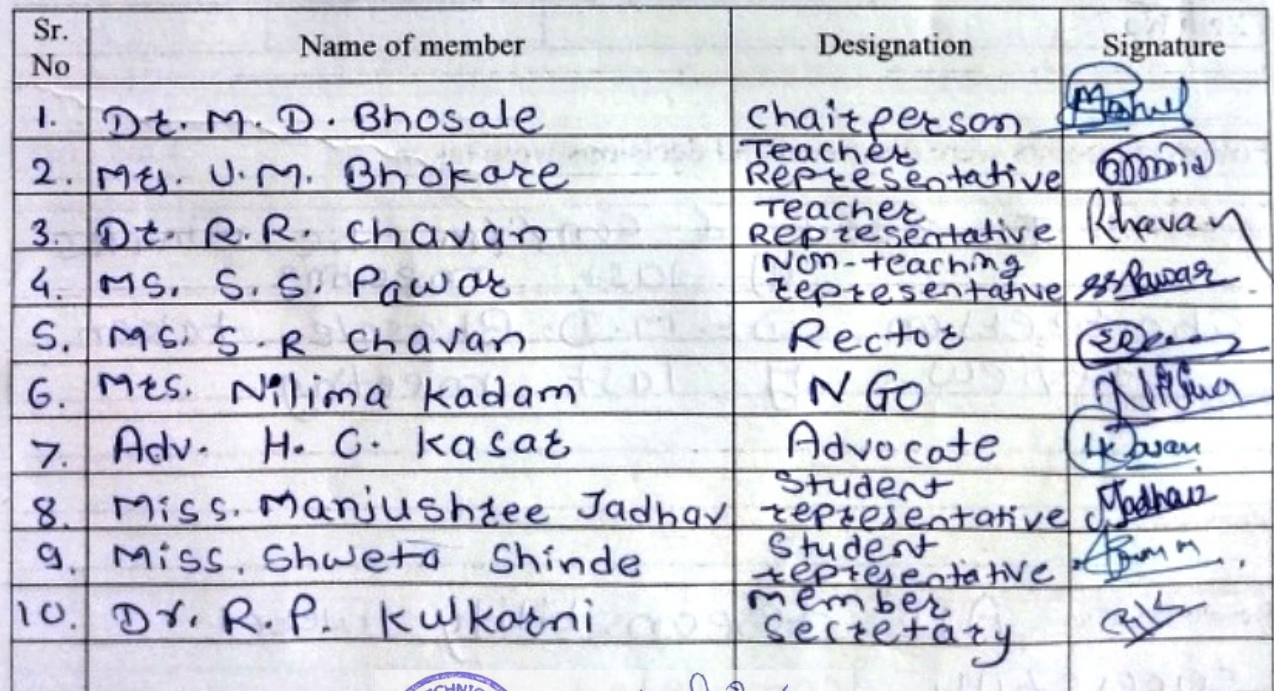 Sr. No Name of member Designation Signature
1. Dr. M. D. Bhosale Chairperson
2. Mrs. U. M. Bhokare Teacher Representative
3. Dr. R. R. Chavan Teacher Representative Rhavan
4. Ms. S. S. Pawar Non-teaching representative SSPawar
5. Ms. S. R Chavan Rector
6. Mrs. Nilima Kadam NGO Nilima
7. Adv. H. C. Kasat Advocate
8. Miss. Manjushree Jadhav Student representative Jadhav
9. Miss. Shweta Shinde Student representative
10. Dr. R. P. Kulkarni Member Secretary
TECHNIC